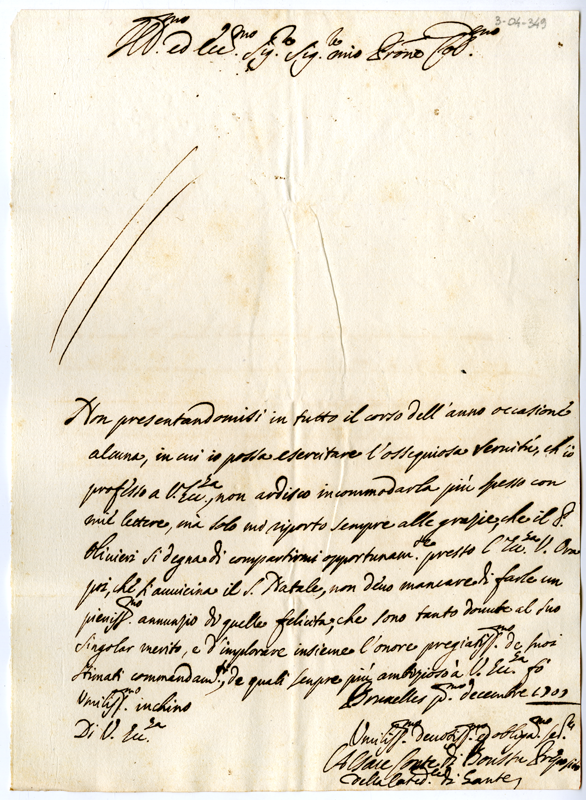 3-04-349
Ill.mo ed Ecc.mo Sig.re Sig.re mio Prone Col.mo
Non presentandomisi in tutto il corso dell'anno occasione
alcuna, in cui io possa esercitare l'ossequiosa servitù, ch'io
professo a V. Ecc.za, non ardisco incommodarla più spesso con
mie lettere, mà solo mi riporto sempre alle grazie, che il P.
Olivieri si degna di compartirmi opportunam.te presso l'Ecc.za V. Ora
poi, che s'avvicina il S. Natale, non devo mancare di farle un
pieniss.mo annunzio di quelle felicità, che sono tanto dovute al suo
singolar merito, e d'implorare insieme l'onore pregiatiss.mo de suoi
stimati commandam.ti, de quali sempre più ambizioso à V. Ecc.za fò
umiliss.mo inchino
Bruxelles p.mo decembre
Di V. Ecc.za
Umiliss.mo devotiss.mo ed obligat.mo se.re
Alsace Conte di Boussu Preposito
della Cated.le di Gante